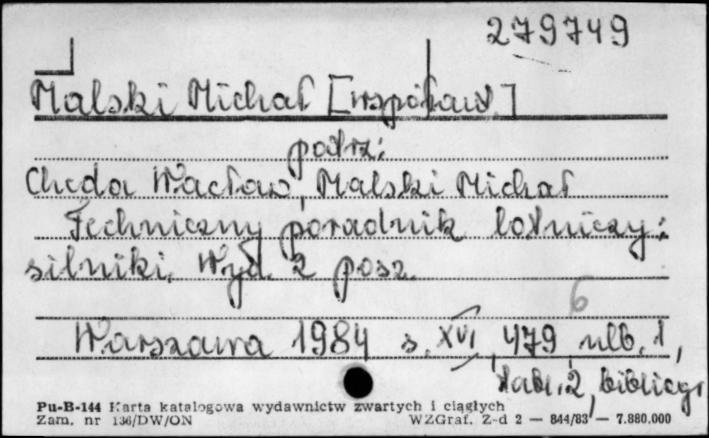 279749
Malski Michał [współaut.]
patrz:
Chęda Wacław, Malski Michał
Techniczny poradnik lotniczy:
silniki. Wyd. 2 posz.
6
Warszawa 1984 s. XVI, 479, nlb. 1,
tabl. 2, bibliogr.
Pu-B-144 Karta katalogowa wydawnictw zwartych i ciągłych
Zam. nr 136/DW/ON WZGraf. Z-d 2 — 844/83 — 7.880.000